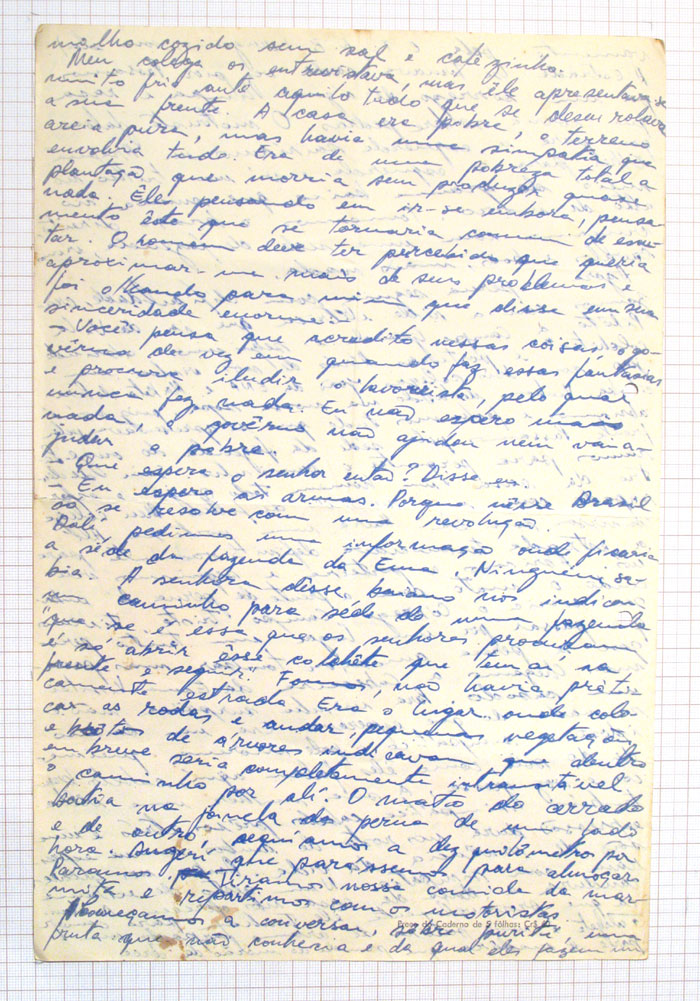 molho cozido sem sal e cafezinho.
Meu colega os entrevistava, mas êle apresentava-se
muito frio ante aquilo tudo que se desenrolava
a sua frente. A casa era pobre, o terreno
areia pura, mas havia uma simpatia que
envolvia tudo. Era de uma pobreza total a
plantação que morria sem produzir quase
nada. Êles pensando em ir-se embora, pensa-
mento êste que se tornaria comum de escu-
tar. O homem deve ter percebido que queria
aproximar-me mais de seus problemas e
foi olhando para mim que disse em sua
sinceridade enorme:
- Você pensa que acredito nessas coisas o go-
vêrno de vez em quando faz essas fantasias
e procura iludir o lavorista, pelo qual
nunca fez nada. Eu não espero mais
nada, o govêrno não ajudou nem vai a-
judar o pobre.
- Que espera o senhor então? Disse eu
- Eu espero as armas. Porque nêsse Brasil
só se resolve com uma revolução.
Dalí pedimos uma informação onde ficaria
a séde da fazenda da Ema. Ninguém sa-
bia. A senhora disse baiano nos indicou
um caminho para séde de uma fazenda
"que se é essa que os senhores procuram
é só abrir êsse colchête que tem aí na
frente e seguir". Fomos, não havia prati-
camente estrada. Era o lugar onde colo-
car as rodas e andar. pequenas vegetações
e brotos de árvores indicavam que dentro
em breve seria completamente intransitável
o caminho por alí. O mato do cerrado
batia na janela da perua de um lado
e de outro, seguíamos a dez quilômetro por
hora. Sugerí que parássemos para almoçar
Paramos. Tiramos nossa comida da mar-
mita e repartimos com os motoristas.
Começamos a conversar sobre buriti uma
fruta que não conhecia e da qual êles fazem
Preço do Caderno de 5 fôlhas: Cr$